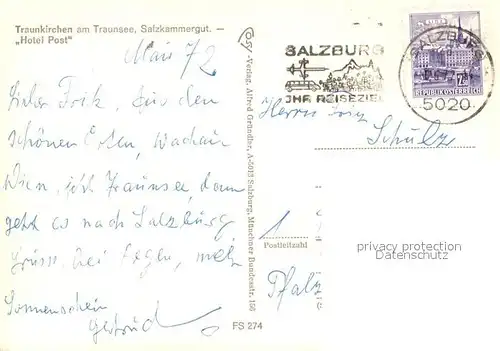 Traunkirchen am Traunsee, Salzkammergut. -
„Hotel Post"
Mai 72
Lieber Fritz, für den
schönen
Wachau
Wien, jetzt Traunsee, dann
geht es nach Salzburg
Grüsse bei Regen, mehr
Sonnenschein
Gertrud
Cosy-Verlag, Alfred Gründler, A-5013 Salzburg, Münchner Bundesstr. 156
FS 274
SALZBURG
IHR REISEZIEL
SALZBURG
5020
REPUBLIK ÖSTERREICH
Herrn
Schulz
Postleitzahl
Pfalz
privacy protection
Datenschutz